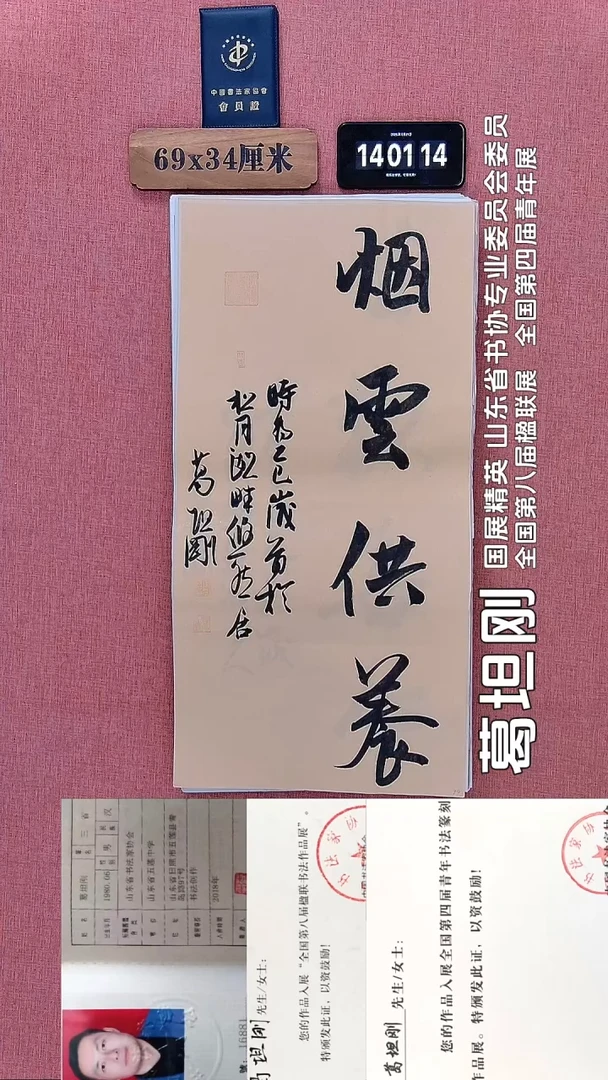 中國書法家協會
會員證
69x34厘米
14 01 14
烟雲供養
時為乙巳歲首於
葛坦剛
葛坦刚
国展精英 山东省书协专业委员会委员
全国第八届楹联展 全国第四届青年展
山东省书法家协会
山东省五莲中学
书法创作
2018年
16881
葛坦刚 先生/女士:
您的作品入展“全国第八届楹联书法作品展”。
特颁发此证,以资鼓励!
葛坦刚 先生/女士:
您的作品入展全国第四届青年书法篆刻
作品展。特颁发此证,以资鼓励!